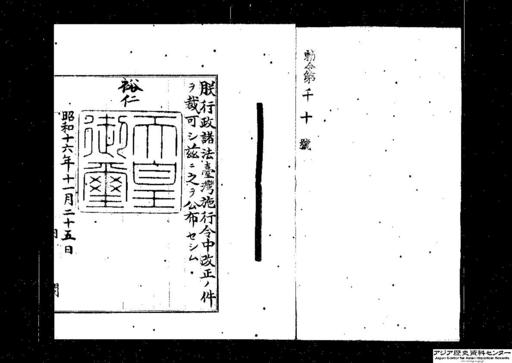 勅令第千十號
朕行政諸法臺灣施行令中改正ノ件
ヲ裁可シ茲ニ之ヲ公布セシム
裕仁
天皇
御璽
昭和十六年十一月二十五日
アジア歴史資料センター
Japan Center for Asian Historical Records